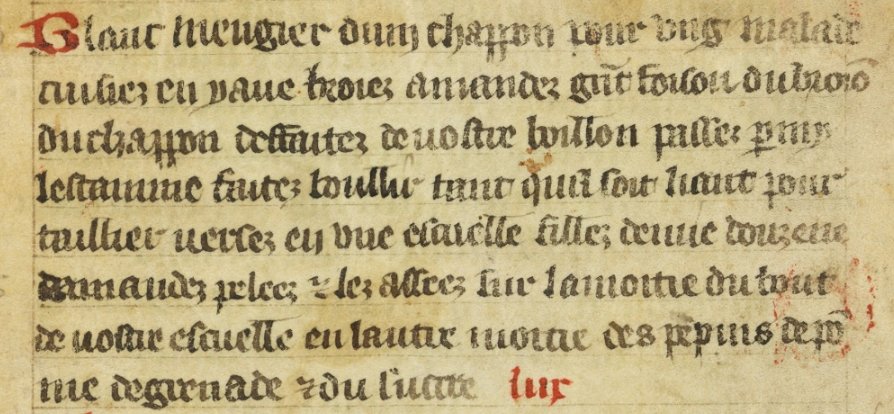 Blanc mengier dung chappon pour ung malade
cuisiez en yaue broiez amandez gnt foison du broiō
du chappon deffaitez de vostre boillon passez pmy
lestamine faitez boullir tant quil soit liant pour
taillier versez en vne escuelle fillez demie douzene
damandez pelees & lez asseez sur la moitie du bout
de vostre escuelle en lautre moitie des pepins de pō
me de grenade & du succre lux